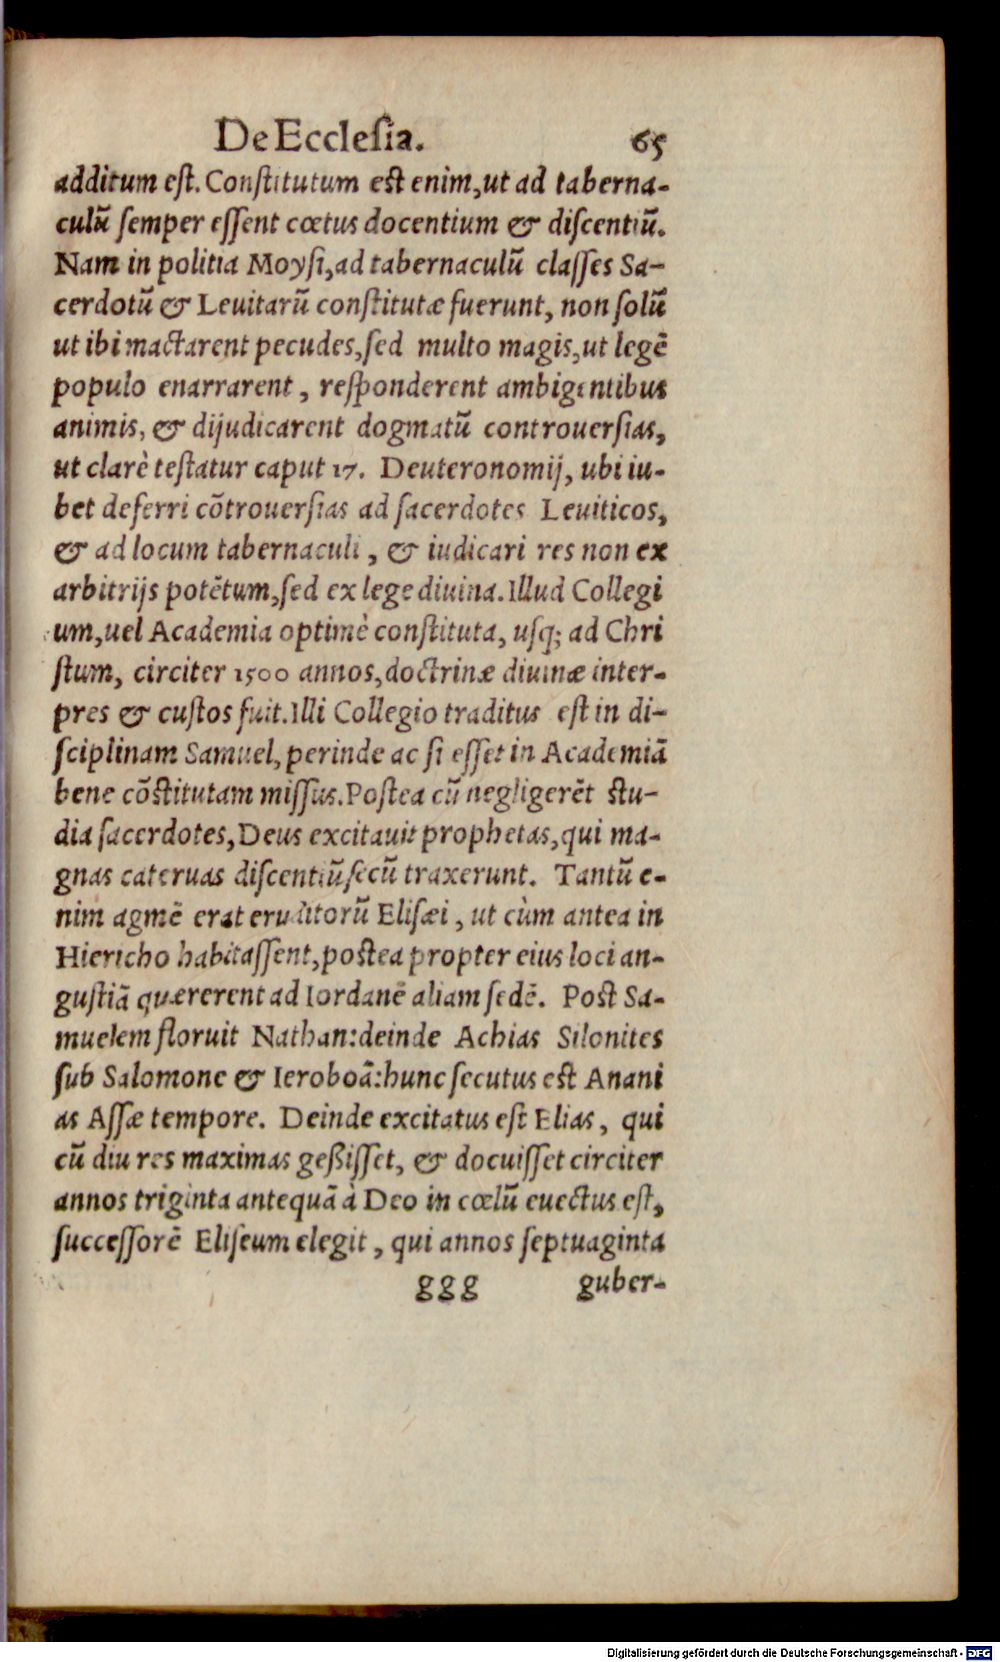 De Ecclesia. 65
additum est. Constitutum est enim, ut ad taberna-
culũ semper essent cœtus docentium & discentiũ.
Nam in politia Moysi, ad tabernaculũ classes Sa-
cerdotũ & Leuitarũ constitutæ fuerunt, non solũ
ut ibi mactarent pecudes, sed multo magis, ut legẽ
populo enarrarent, responderent ambigentibus
animis, & dijudicarent dogmatũ controuersias,
ut clarè testatur caput 17. Deuteronomij, ubi iu-
bet deferri cõtrouersias ad sacerdotes Leuiticos,
& ad locum tabernaculi, & iudicari res non ex
arbitrijs potẽtum, sed ex lege diuina. Illud Collegi
um, uel Academia optimè constituta, usq; ad Chri
stum, circiter 1500 annos, doctrinæ diuinæ inter-
pres & custos fuit. Illi Collegio traditus est in di-
sciplinam Samuel, perinde ac si esset in Academiã
bene cõstitutam missus. Postea cũ negligerẽt stu-
dia sacerdotes, Deus excitauit prophetas, qui ma-
gnas cateruas discentiũ secũ traxerunt. Tantũ e-
nim agmẽ erat eruditorũ Elisæi, ut cùm antea in
Hiericho habitassent, postea propter eius loci an-
gustiã quærerent ad Iordanẽ aliam sedẽ. Post Sa-
muelem floruit Nathan: deinde Achias Silonites
sub Salomone & Ieroboã: hunc secutus est Anani
as Assæ tempore. Deinde excitatus est Elias, qui
cũ diu res maximas geßisset, & docuisset circiter
annos triginta antequã à Deo in cœlũ euectus est,
successorẽ Eliseum elegit, qui annos septuaginta
ggg guber-
Digitalisierung gefördert durch die Deutsche Forschungsgemeinschaft - DFG